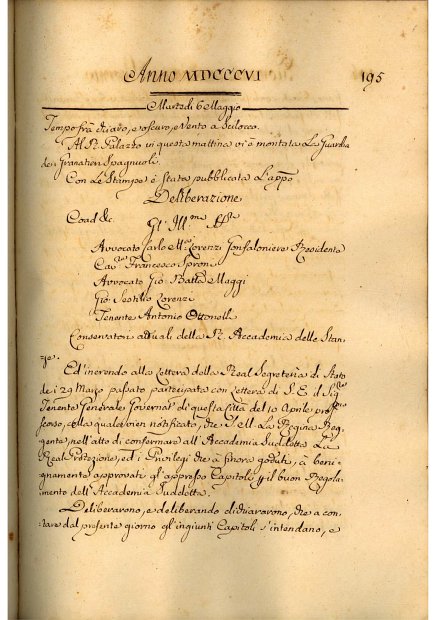 Anno MDCCCVI 195
Martedì 6 Maggio
Tempo frà chiaro, e oscuro, e Vento a Scilocco.
Al R. Palazzo in questa mattina vi è montata La Guardia
de i Granatieri Spagnuoli.
Con Le Stampe è stata pubblicata L'app.
Deliberazione
Coad. &c.
Gl' Ill.mi
Avvocato Carlo Lorenzi Gonfaloniere Residente
Cav. Francesco Sproni
Avvocato Gio: Batta Maggi
Gio: Lorenzi
Tenente Antonio Ottonelli
Conservatori attuali della R. Accademia delle Stan-
ze.
Ed' inerendo alla Lettera della Real Segreteria di Stato
de i 29 Marzo passato partecipata con Lettera di S. E. il Sig.
Tenente Generale Governat. di questa Città del 10 Aprile pros.
scorso, colla quale vien notificato, che S. M. La Regina Reg-
gente, nell' atto di confermare all' Accademia Suddetta La
Real Protezione, ed i Privilegi che à finora goduti, à beni-
gnamente approvati gl' appresso Capitoli il buon Regola-
mento dell' Accademia Suddetta.
Deliberarono, e deliberando dichiararono, che a con-
tare dal presente giorno gl' ingiunti Capitoli s' intendano, e